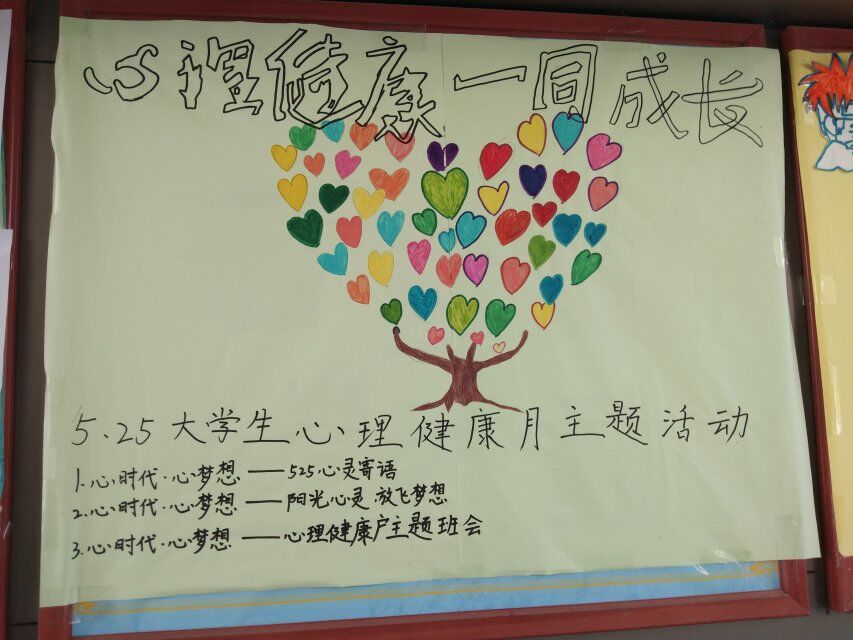 心理健康一同成长
5.25大学生心理健康月主题活动
1.心时代·心梦想——525心灵寄语
2.心时代·心梦想——阳光心灵 放飞梦想
3.心时代·心梦想——心理健康户主题班会